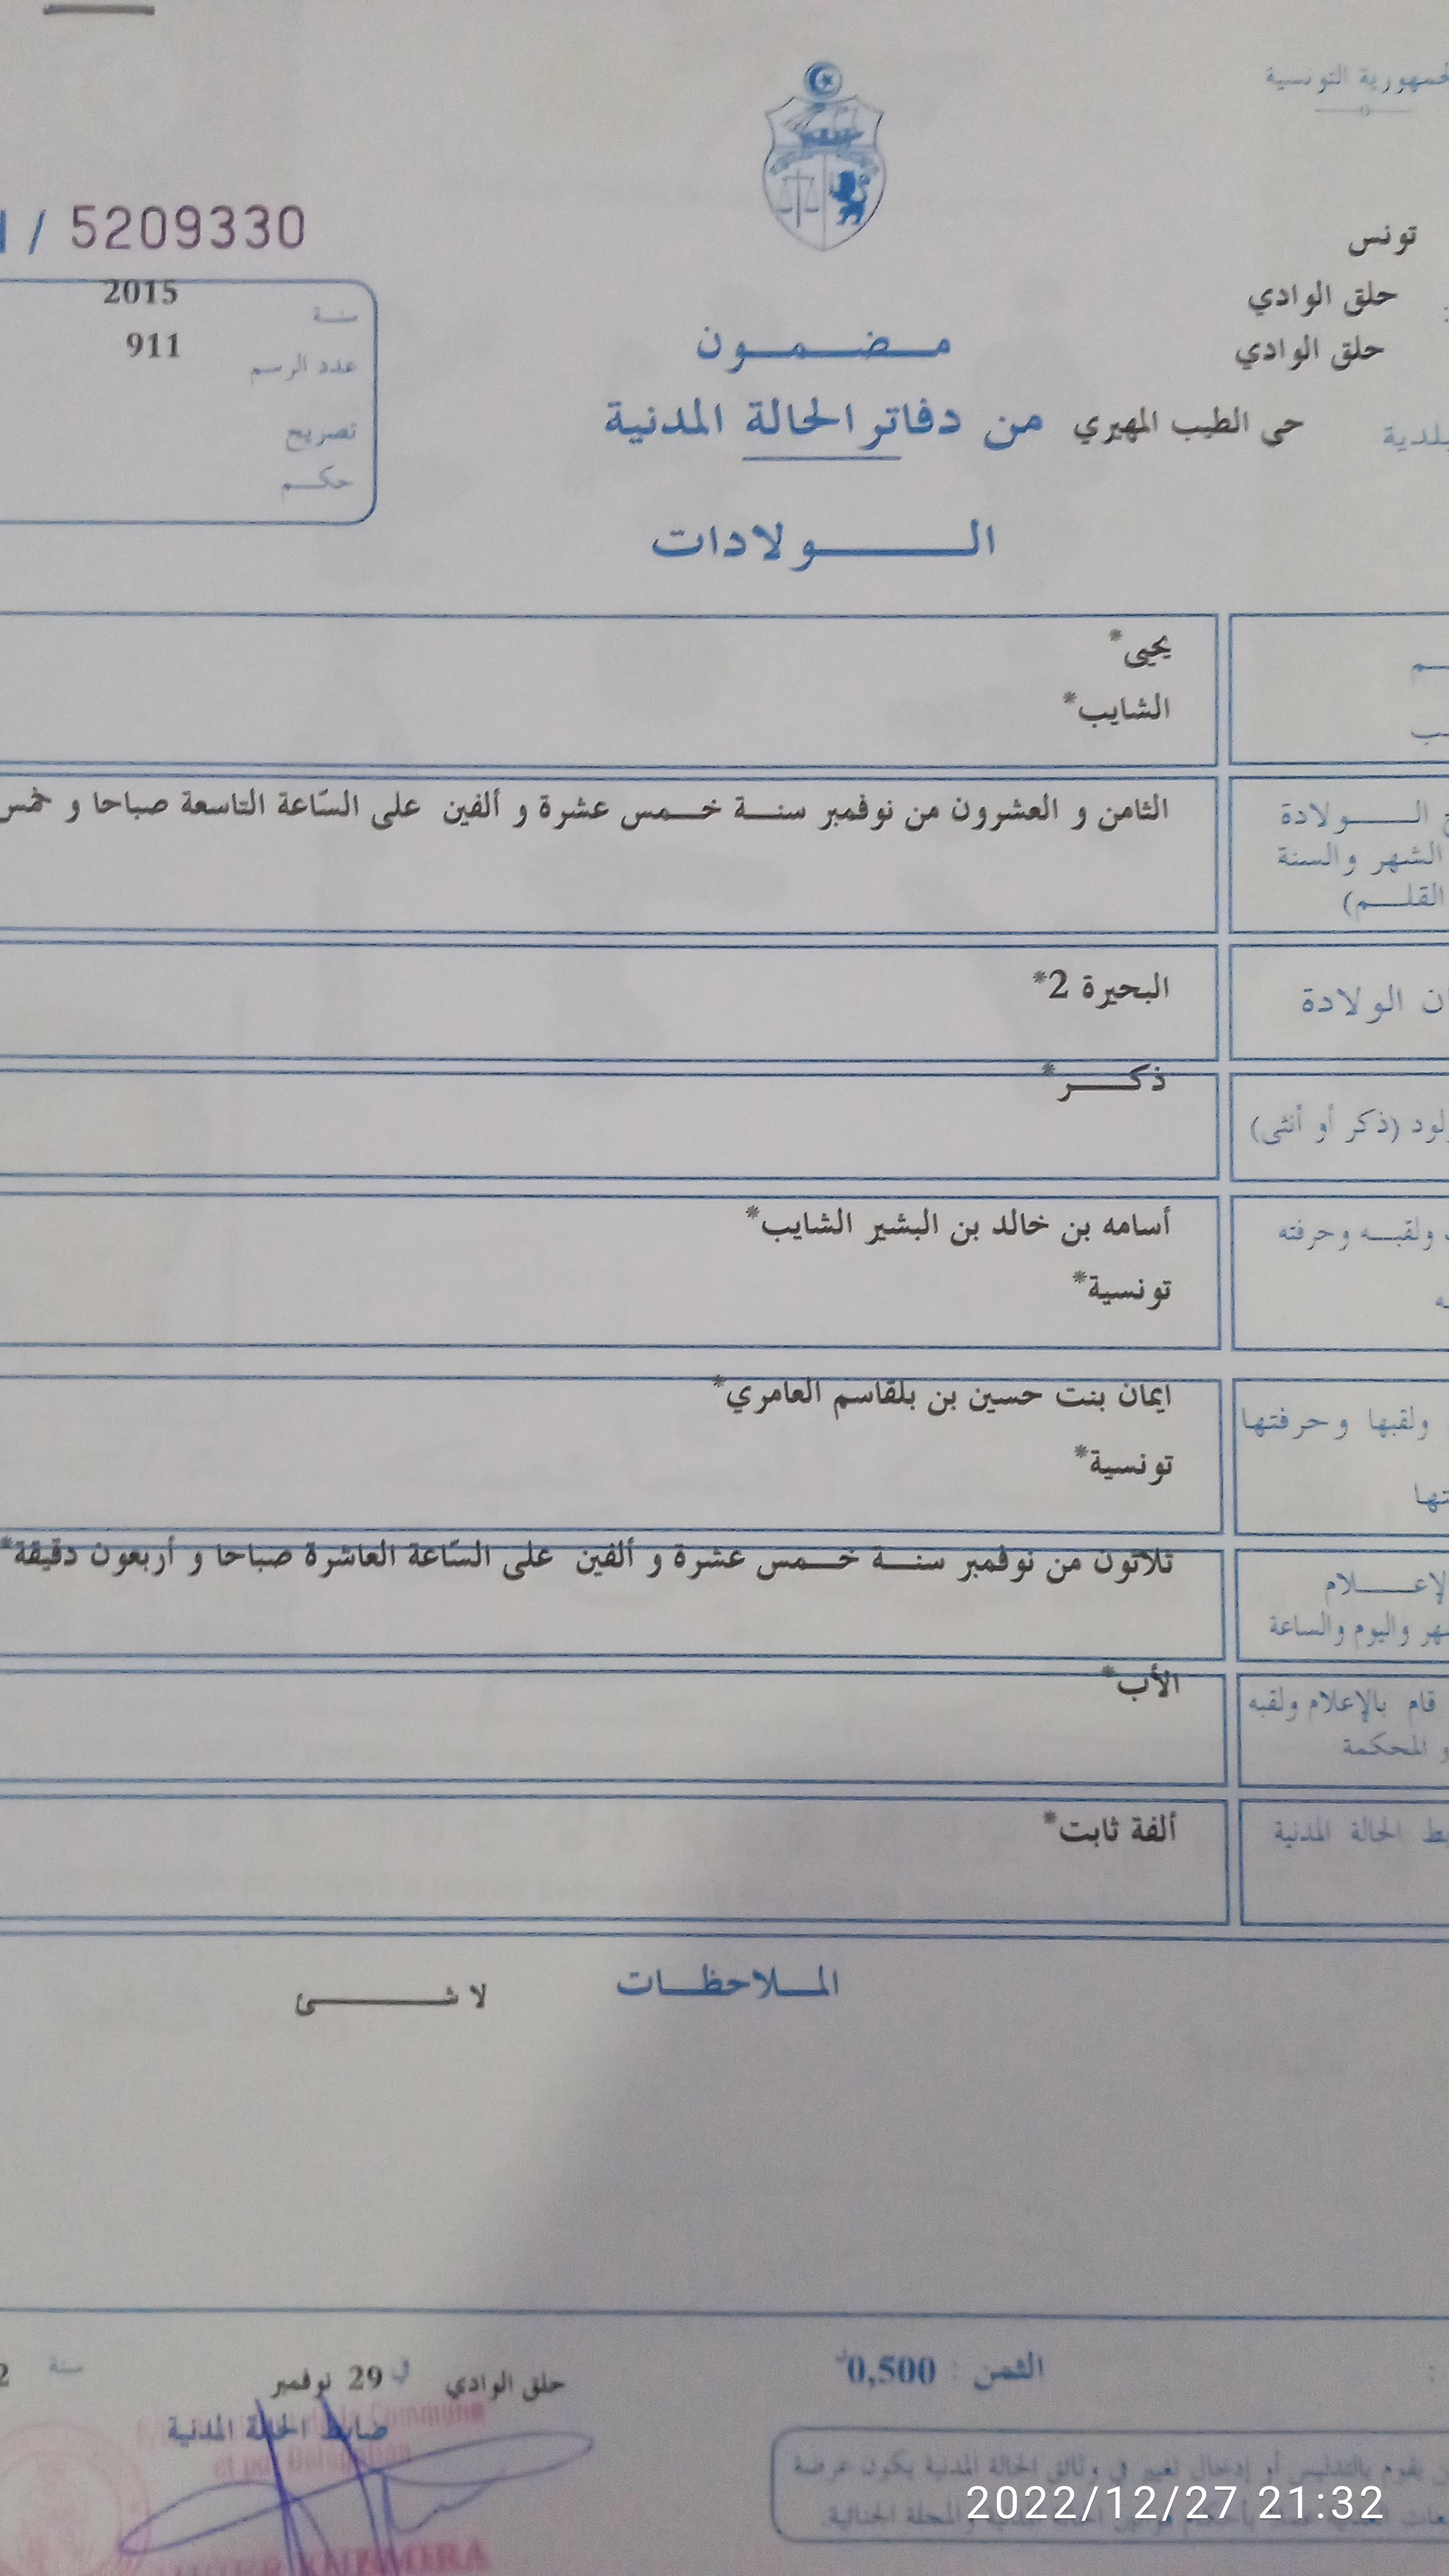 الجمهورية التونسية
تونس
حلق الوادي
حلق الوادي
حي الطيب المهيري
/ 5209330
سنة 2015
عدد الرسم 911
تصريح
حكم
مضمون
من دفاتر الحالة المدنية
الولادات
يحيى*
الشايب*
الولادة
الشهر والسنة
القلم)
الثامن و العشرون من نوفمبر سنة خمس عشرة و ألفين على السّاعة التاسعة صباحا و خمس
الولادة
البحيرة 2*
(ذكر أو أنثى)
ذكر*
ولقبه وحرفته
أسامه بن خالد بن البشير الشايب*
تونسية*
ولقبها وحرفتها
ايمان بنت حسين بن بلقاسم العامري*
تونسية*
الإعلام
واليوم والساعة
ثلاثون من نوفمبر سنة خمس عشرة و ألفين على السّاعة العاشرة صباحا و أربعون دقيقة*
قام بالإعلام ولقبه
المحكمة
الأب*
الحالة المدنية
ألفة ثابت*
الملاحظات لا شئ
الثمن : 0,500
حلق الوادي في 29 نوفمبر سنة
ضابط الحالة المدنية
Commune
et par Délégation
يقوم بالتدليس أو إدخال تغيير في وثائق الحالة المدنية يكون عرضة
والمجلة الجنائية.
2022/12/27 21:32